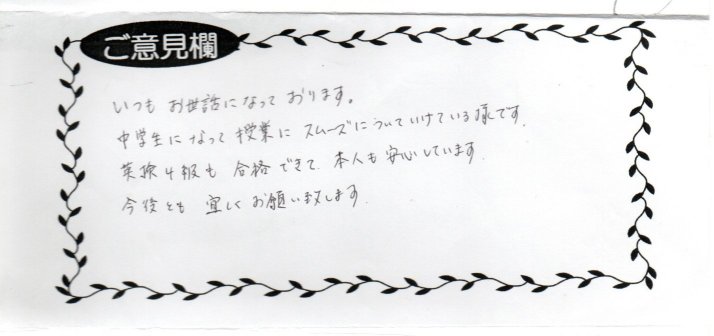 ご意見欄
いつも お世話になって おります。
中学生になって 授業に スムーズについていけている様です。
英検4級も 合格できて、本人も安心しています。
今後とも 宜しくお願い致します。